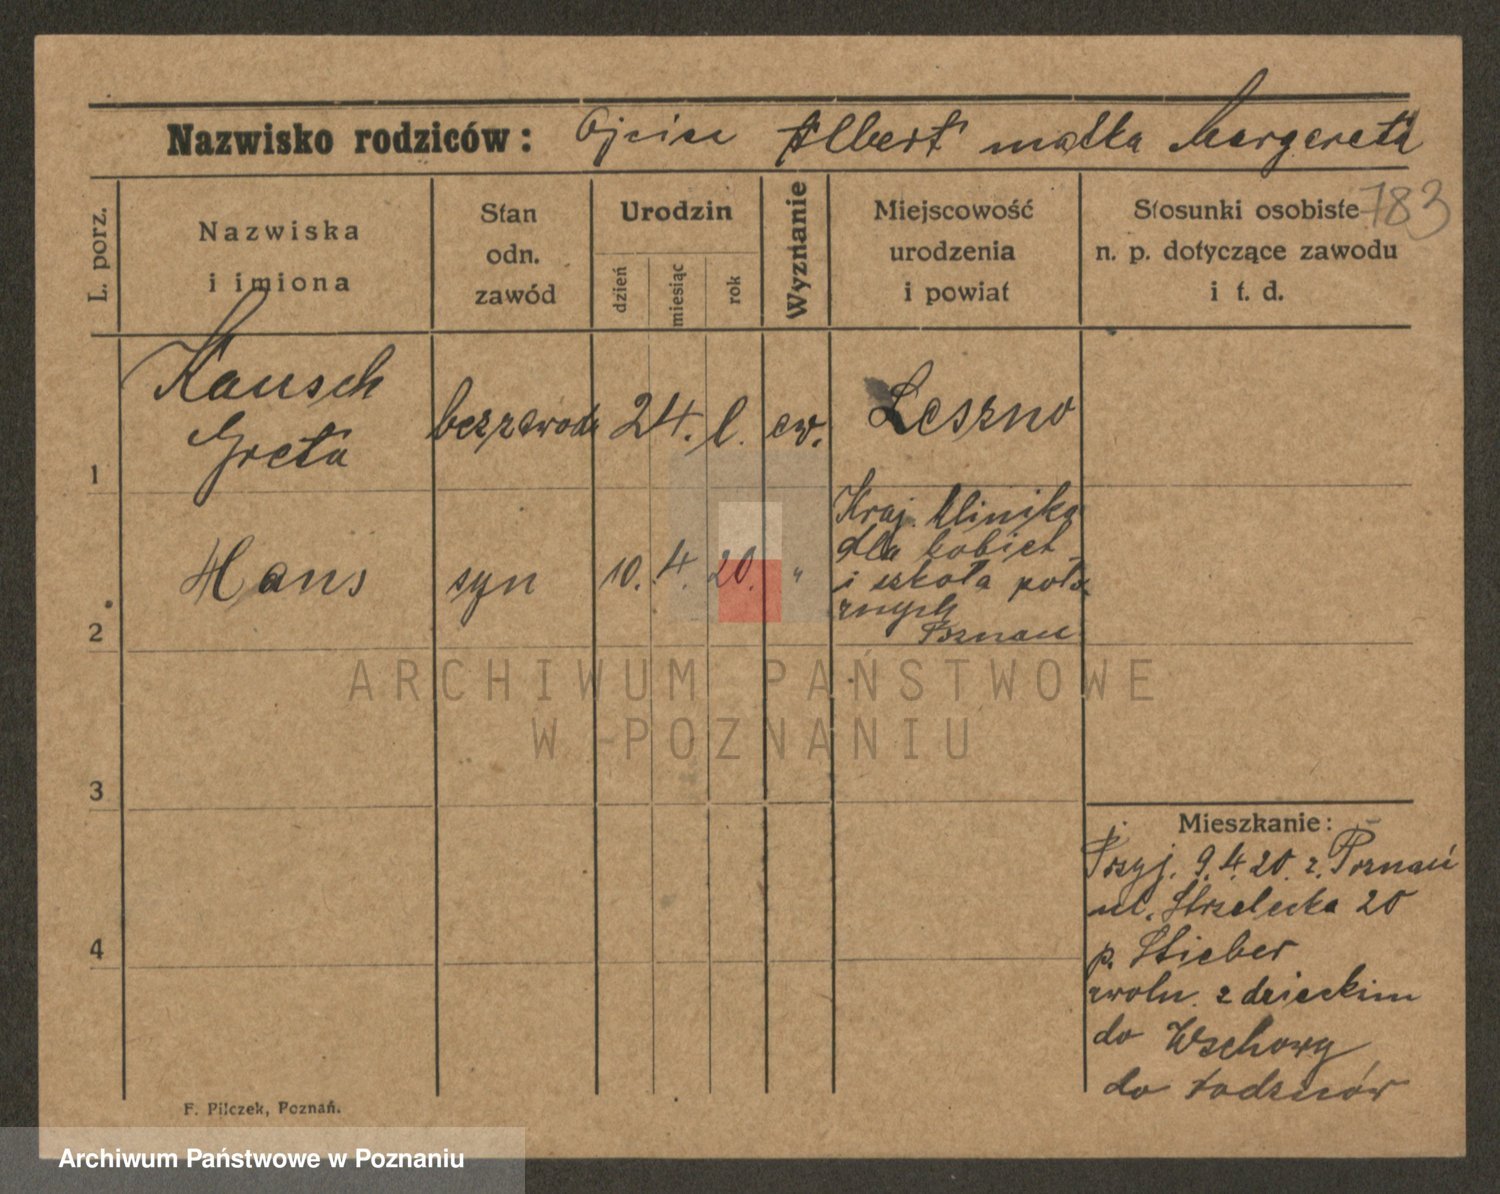 Nazwisko rodziców: Ojciec Albert matka Margereta
783
L. porz.
Nazwiska
i imiona
Stan
odn.
zawód
Urodzin
dzień
miesiąc
rok
Wyznanie
Miejscowość
urodzenia
i powiat
Stosunki osobiste
n. p. dotyczące zawodu
i t. d.
1
Kausch
Greta
bez zawodu
24. l.
ew.
Leszno
2
Hans
syn
10. 4. 20.
"
Kraj. klinika
dla kobiet
i szkoła poło
znych
Poznań
3
4
Mieszkanie:
Przyj. 9.4.20. z. Poznań
ul. Strzelecka 20
p. Stieber
zwoln. z dzieckim
do Wschowy
do rodziców
F. Pilczek, Poznań.
ARCHIWUM PAŃSTWOWE
W POZNANIU
Archiwum Państwowe w Poznaniu